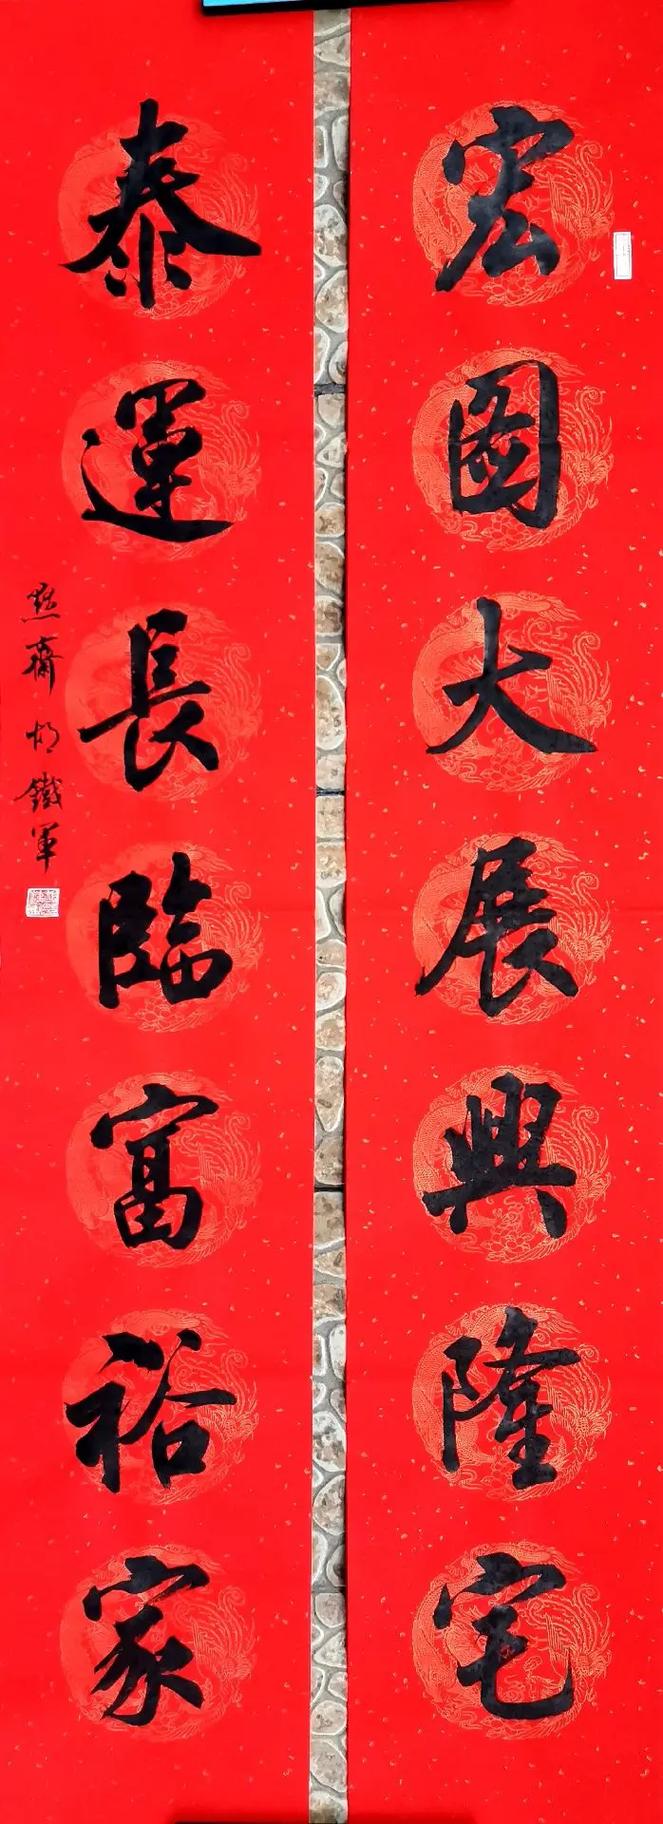 宏圖大展興隆宅
泰運長臨富裕家
點齋胡鐵軍